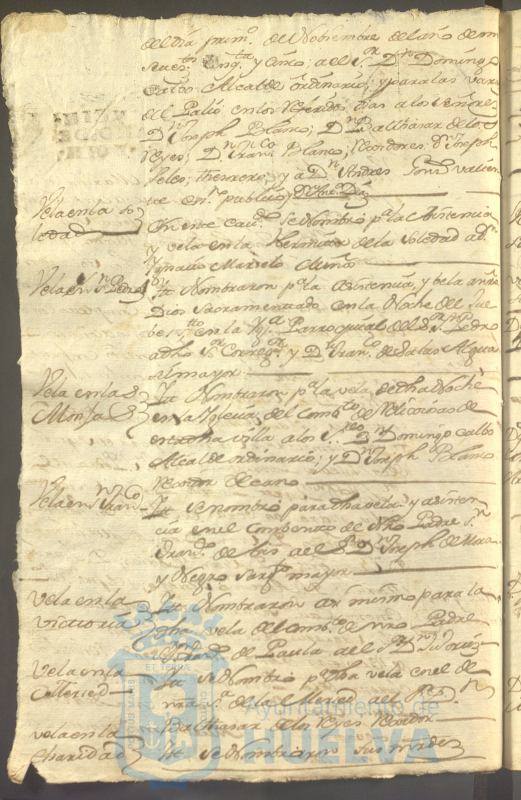 del dia prim.º de Nobiembre del año de mil
setes.tos Cinq.ta y Cinco, a el S.r D.n Domingo
Calbo Alcalde ordinario; y para las Varas
del Palio, en los referidos dias a los Señores
D.n Joseph Blanco; D.n Balthasar de los
Reyes; D.n Fran.co Blanco, Rexidores; D.n Joseph
Peles Herrero; y a D.n Andres
publico
Vela en la So
ledad
En este Cav.do se Nombró p.a la Asistencia
y vela en la Hermita de la Soledad a D.n
Ygnacio
Vela en S.n Pedro
Yt. Nombraron p.a la asistencia, y bela a n.ro
Dios Sacramentado en la Noche del Jue
bes S.to en la Yg.a Parroquial del S.r S.n Pedro
a dho S.r Correg.or y D.n Fran.co de Salas Algua
zil mayor
Vela en las
Monjas
Yt. Nombraron p.a la vela de dha Noche
en la Yglecia del Comb.to de Relixiosas de
esta dha villa a los S.res D.n Domingo Calbo
Alcalde ordinario; y D.n Joseph Blanco
Rexidor Decano
Vela en S.n Fran.co
Yt. se nombró para dha vela y asisten
cia en el Combento de Nro Padre S.n
Fran.co de Asis a el S.r D.n Joseph de
y Negro Sarg.to mayor
Vela en la
victoria
Yt. Nombraron asi mismo para la
dha vela del Comb.to de nro Padre
S.n Fran.co de Paula a el S.r D.n
Vela en la
Merced
Yt. se Nombró p.a dha vela en el de
nra S.a de la Merced a el S.r D.n
Balthasar de los Reyes Rexidor
vela en la
Charidad
Yt. se Nombraron sus mrdes
ET TERRA
Ayuntamiento de
HUELVA